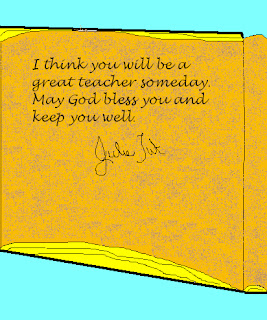 I think you will be a
great teacher someday.
May God bless you and
keep you well